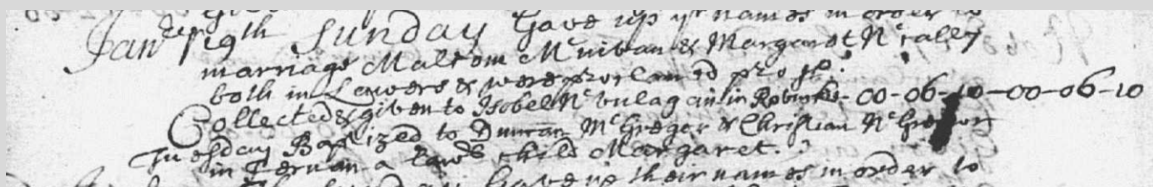 Janry 19th Sunday Gave up yr names in order to
marriage Malcom McNivan & Margaret Nc
both in Lawers & were proclaimed pro
Collected & given to Isobel Nc in 00-06-10-00-06-10
Tuesday Baptized to Duncan McGregor & Christian NcGregor
in Fernan a lawll child Margaret.
Sunday Gave up their names in order to